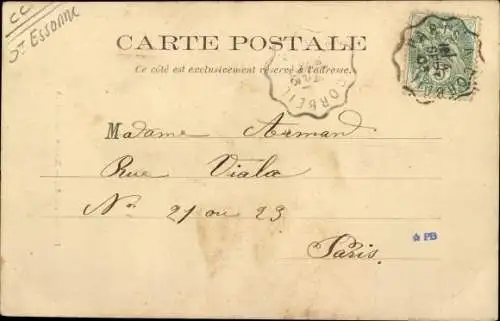 CC
St Essonne
CARTE POSTALE
Ce côté est exclusivement réservé à l'adresse.
CORBEIL
PARIS
CORBEIL
Madame Armand
Rue Viala
No. 21 ou 23
Paris.
PB